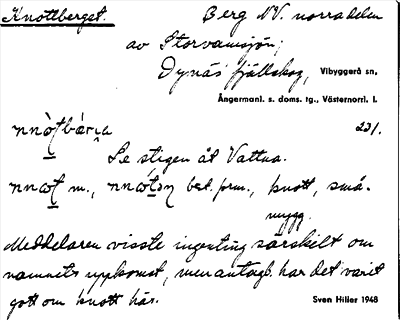 Knottberget. Berg NV. norradelen
av Storvamsjön;
Dynäs fjällskog, Vibyggerå sn,
Ångermanl. s. doms. tg., Västernorrl. l.
231.
Se stigen åt Vattua.
m., best. form., knott, små-
mygg.
Meddelaren visste ingenting särskilt om
namnets uppkomst, men antagl. har det varit
gott om knott här.
Sven Hilier 1948